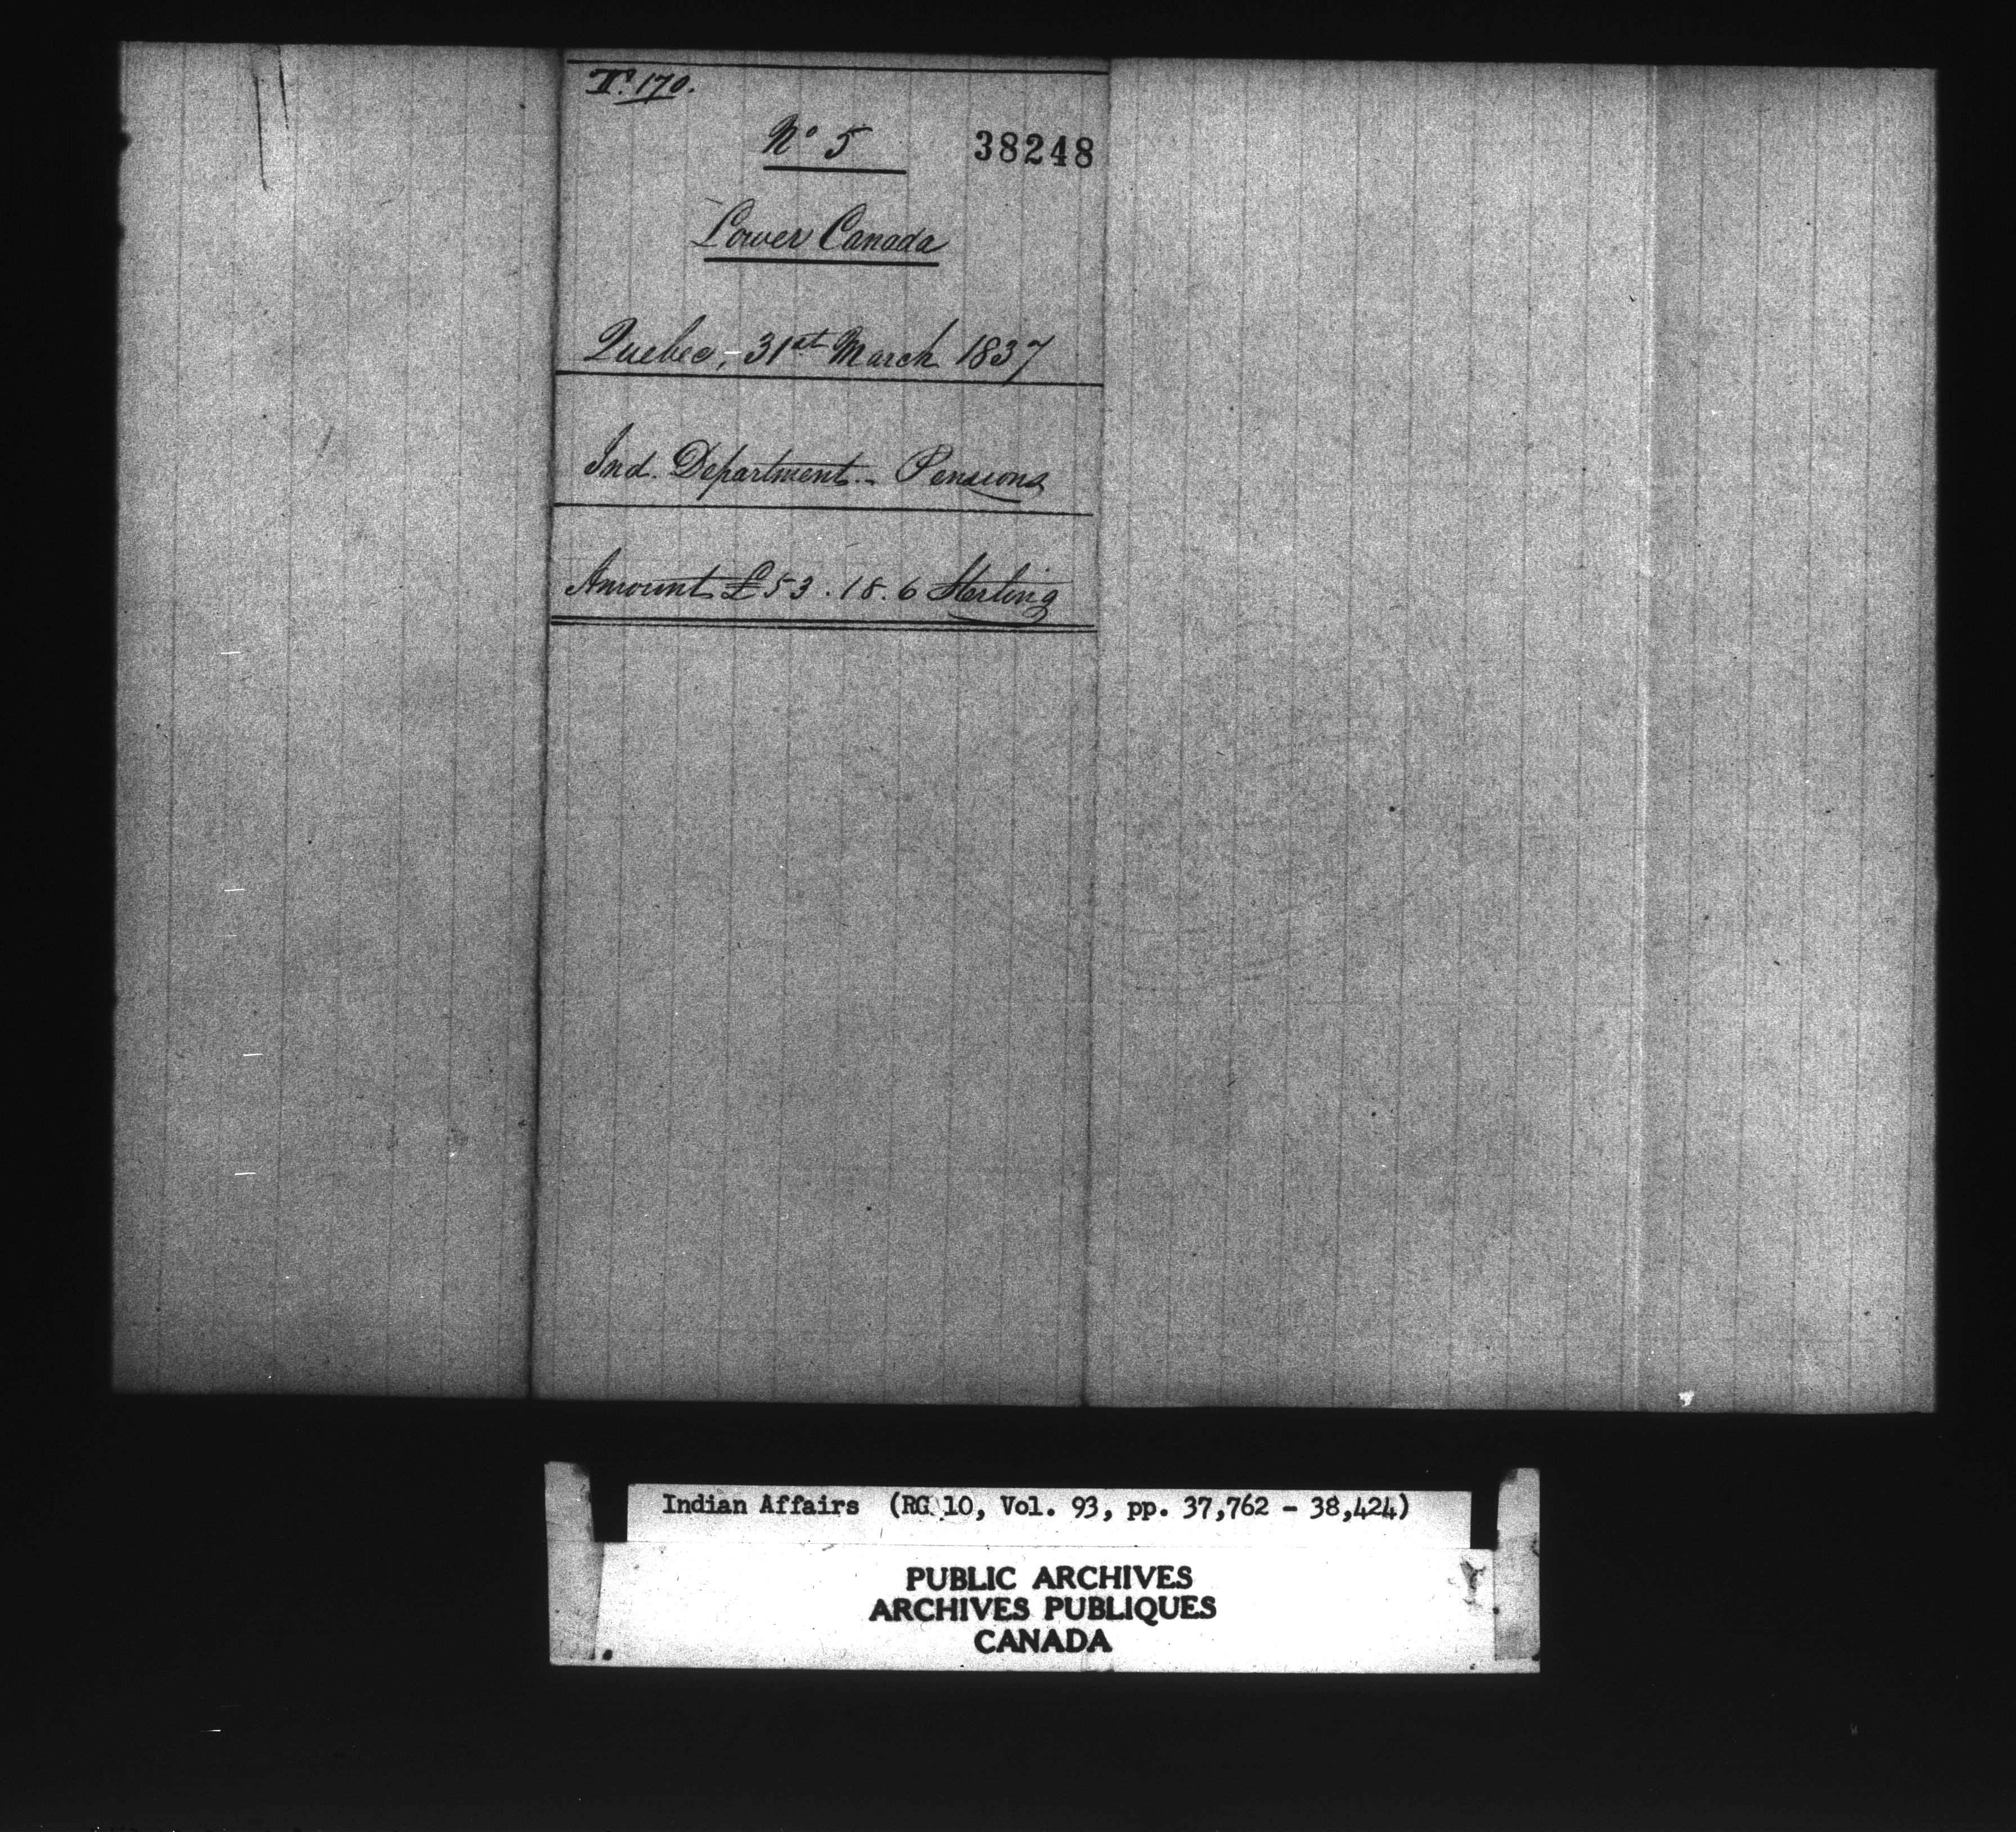 No. 170.
No 5
38248
Lower Canada
Quebec, - 31st March 1837
Ind. Department - Pensions
Amount £53.18.6 Sterling
Indian Affairs (RG 10, Vol. 93, pp. 37,762 - 38,424)
PUBLIC ARCHIVES
ARCHIVES PUBLIQUES
CANADA